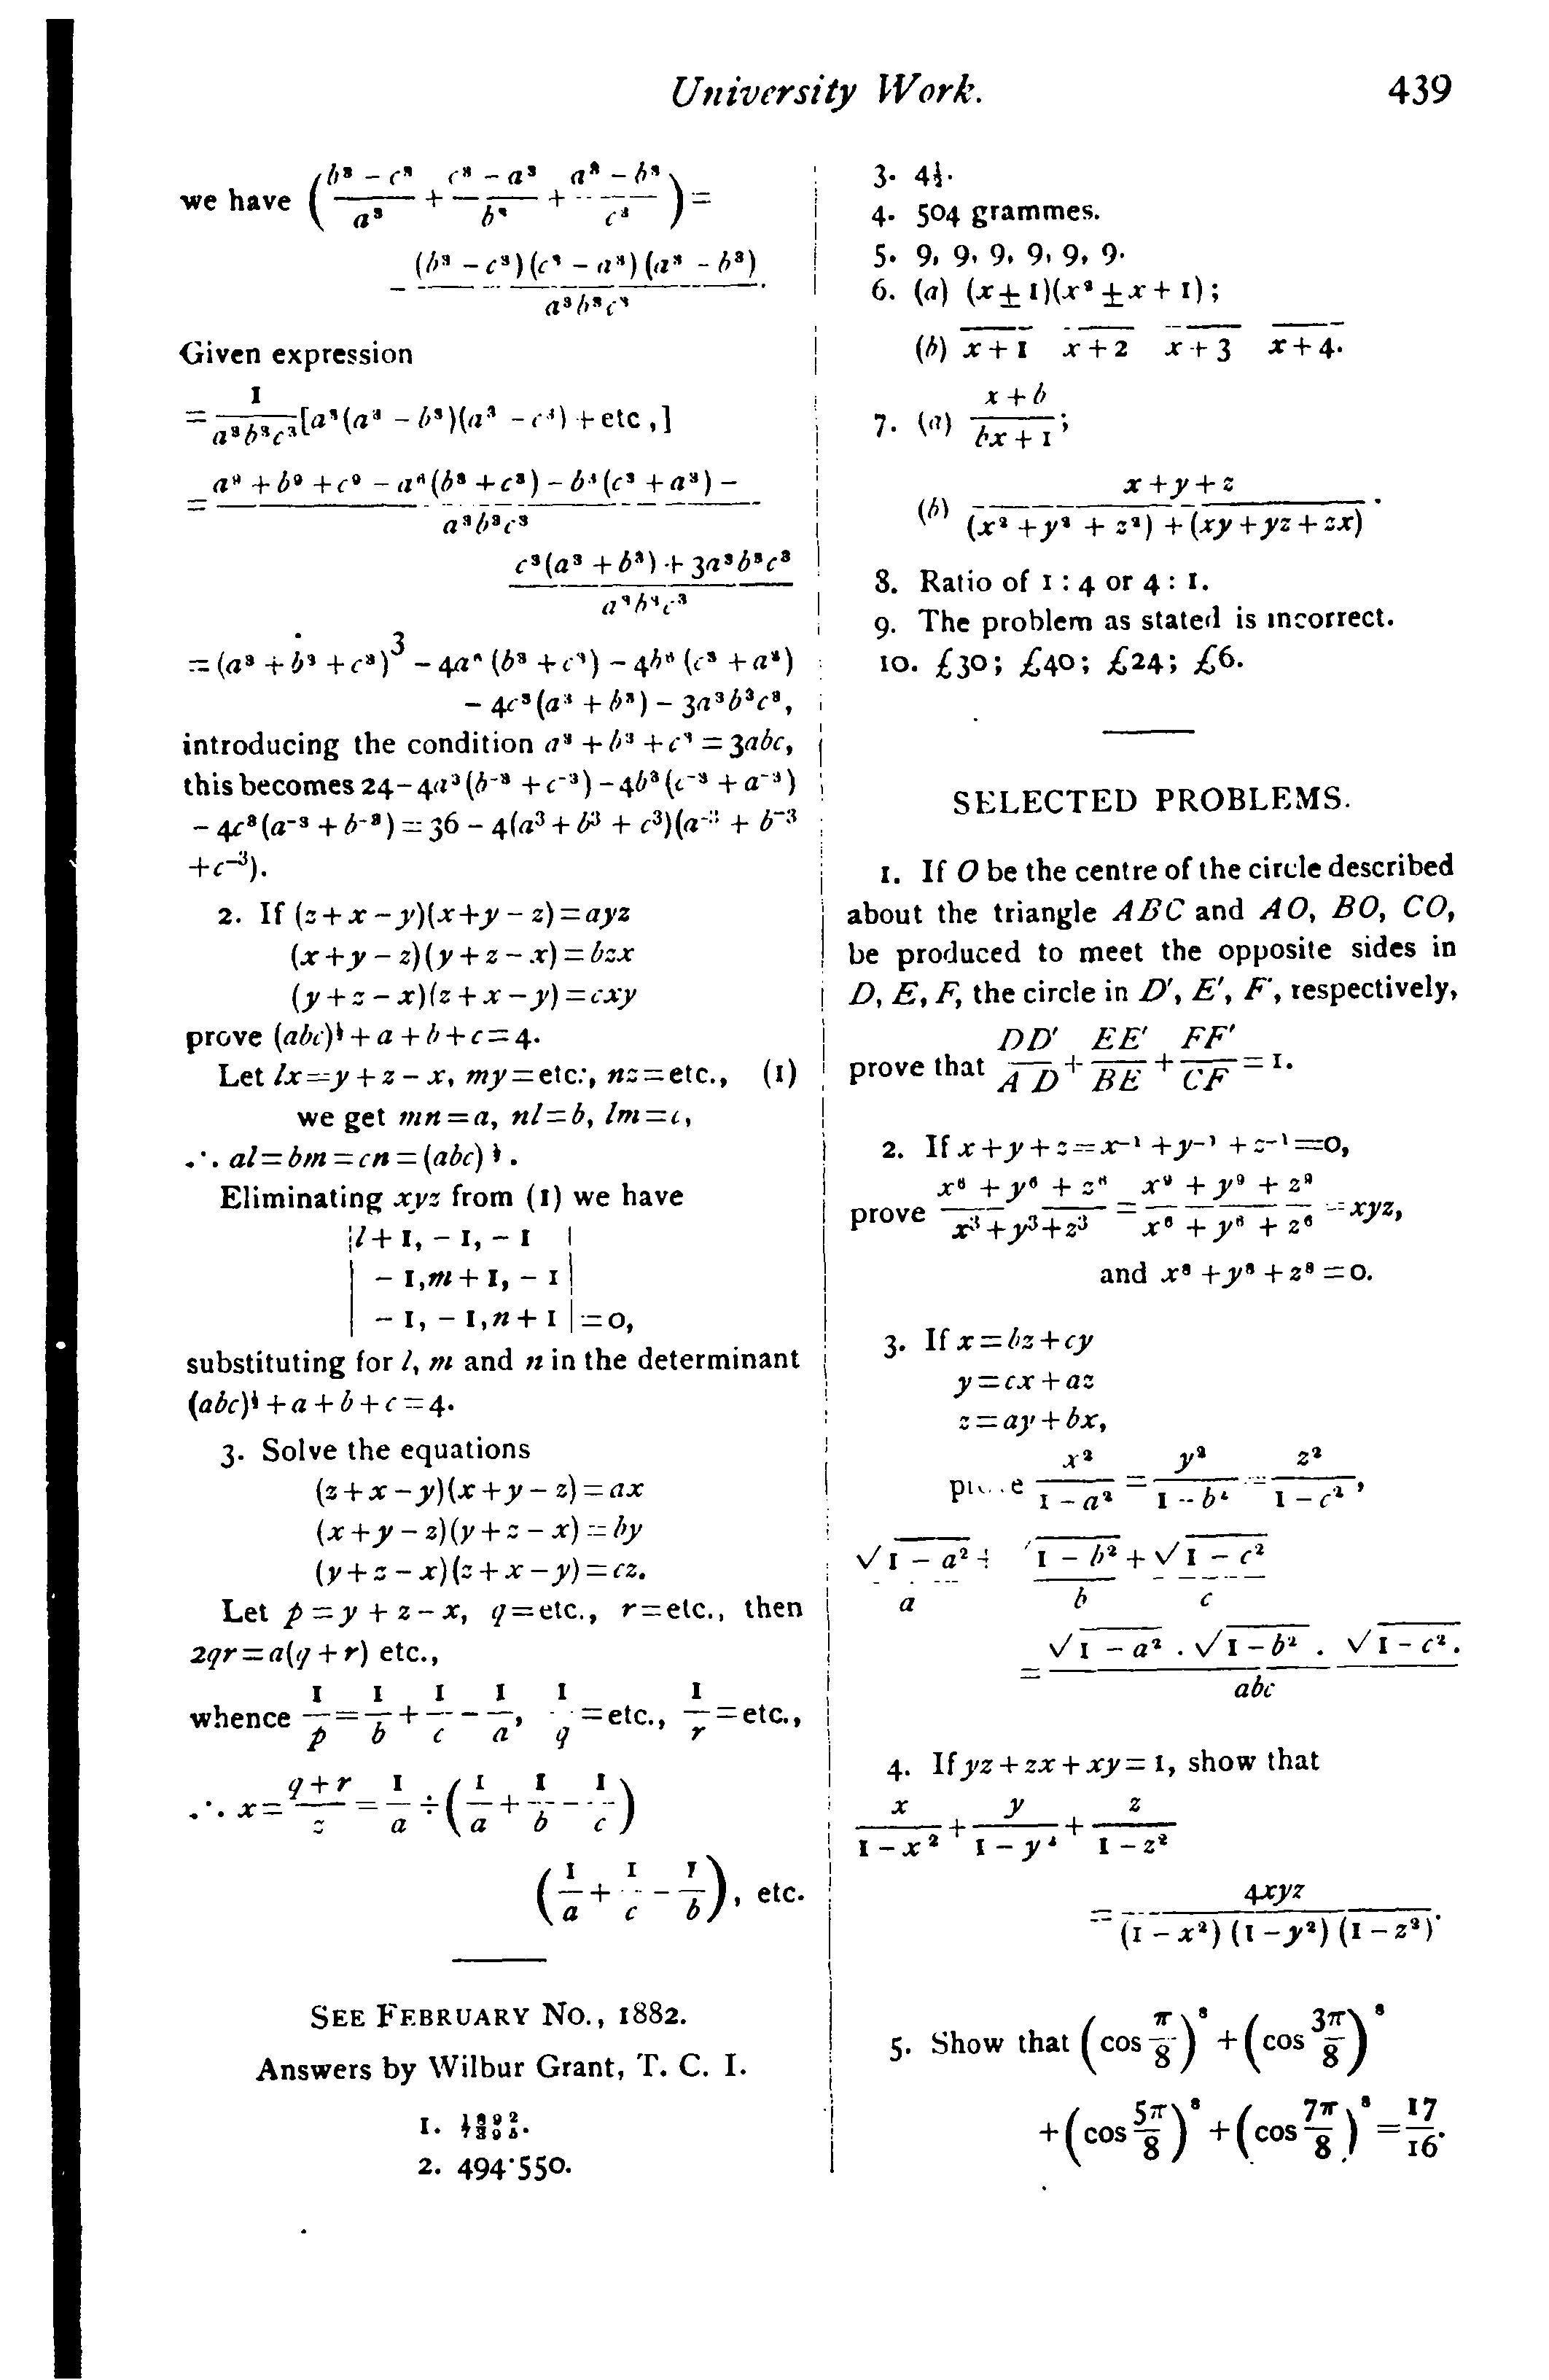 University Work.
439
we have ( (b³ − c³)/a³ + (c³ − a³)/b³ + (a³ − b³)/c³ ) =
− (b³ − c³)(c³ − a³)(a³ − b³) / a³b³c³.
Given expression
= 1/a³b³c³ [a³(a³ − b³)(a³ − c³) + etc.,]
= a⁹ + b⁹ + c⁹ − a⁶(b³ + c³) − b⁶(c³ + a³) − / a³b³c³
c⁶(a³ + b³) + 3a³b³c³ / a³b³c³
= (a³ + b³ + c³)³ − 4a⁶(b³ + c³) − 4b⁶(c³ + a³)
− 4c³(a³ + b³) − 3a³b³c³,
introducing the condition a³ + b³ + c³ = 3abc,
this becomes 24 − 4a³(b⁻³ + c⁻³) − 4b³(c⁻³ + a⁻³)
− 4c³(a⁻³ + b⁻³) = 36 − 4(a³ + b³ + c³)(a⁻³ + b⁻³
+ c⁻³).
2. If (z+x−y)(x+y−z)=ayz
(x+y−z)(y+z−x)=bzx
(y+z−x)(z+x−y)=cxy
prove (abc)½ + a + b + c = 4.
Let lx=y+z−x, my=etc., nz=etc., (1)
we get mn=a, nl=b, lm=c,
∴ al=bm=cn=(abc)½.
Eliminating xyz from (1) we have
|l+1, −1, −1|
|−1, m+1, −1|
|−1, −1, n+1|=0,
substituting for l, m and n in the determinant
(abc)½ + a + b + c = 4.
3. Solve the equations
(z+x−y)(x+y−z)=ax
(x+y−z)(y+z−x)=by
(y+z−x)(z+x−y)=cz.
Let p=y+z−x, q=etc., r=etc., then
2qr=a(q+r) etc.,
whence 1/p = 1/b + 1/c − 1/a, 1/q = etc., 1/r = etc.,
∴ x = (q+r)/z = 1/a ÷ (1/a + 1/b − 1/c)
(1/a + 1/c − 1/b), etc.
SEE FEBRUARY NO., 1882.
Answers by Wilbur Grant, T. C. I.
1.
2. 494·550.
3. 4½.
4. 504 grammes.
5. 9, 9, 9, 9, 9, 9.
6. (a) (x±1)(x²±x+1);
(b) x+1 x+2 x+3 x+4.
7. (a) (x+b)/(bx+1);
(b) (x+y+z)/((x²+y²+z²)+(xy+yz+zx)).
8. Ratio of 1 : 4 or 4 : 1.
9. The problem as stated is incorrect.
10. £30; £40; £24; £6.
SELECTED PROBLEMS.
1. If O be the centre of the circle described
about the triangle ABC and AO, BO, CO,
be produced to meet the opposite sides in
D, E, F, the circle in D′, E′, F′, respectively,
prove that DD′/AD + EE′/BE + FF′/CF = 1.
2. If x+y+z=x⁻¹+y⁻¹+z⁻¹=0,
prove (x⁶+y⁶+z⁶)/(x³+y³+z³) = (x⁹+y⁹+z⁹)/(x⁶+y⁶+z⁶) = xyz,
and x⁸+y⁸+z⁸=0.
3. If x=bz+cy
y=cx+az
z=ay+bx,
prove x²/(1−a²) = y²/(1−b²) = z²/(1−c²),
√(1−a²)/a + √(1−b²)/b + √(1−c²)/c
= √(1−a²) . √(1−b²) . √(1−c²) / abc.
4. If yz+zx+xy=1, show that
x/(1−x²) + y/(1−y²) + z/(1−z²)
= 4xyz/((1−x²)(1−y²)(1−z²)).
5. Show that (cos π/8)⁸ + (cos 3π/8)⁸
+ (cos 5π/8)⁸ + (cos 7π/8)⁸ = 17/16.